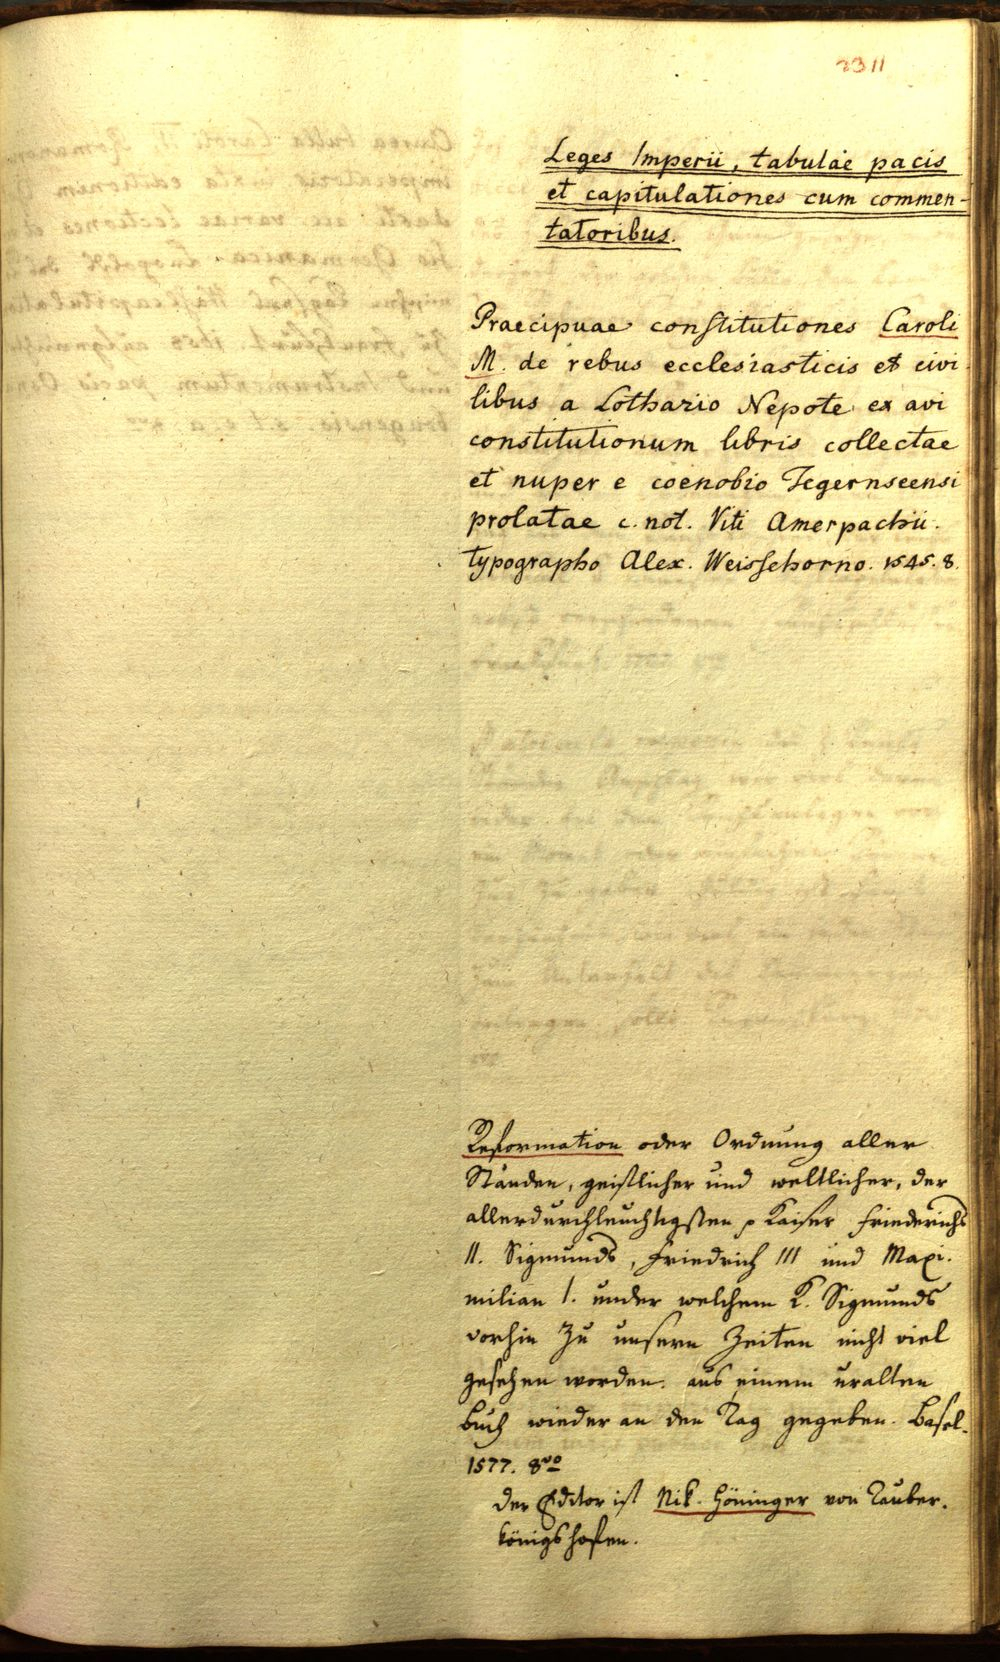 2311
Leges Imperii, tabulae pacis
et capitulationes cum commen-
tatoribus.
Praecipuae constitutiones Caroli
M. de rebus ecclesiasticis et civi
libus a Lothario Nepote ex avi
constitutionum libris collectae
et nuper e coenobio Tegernseensi
prolatae c. not. Viti Amerpachii.
typographo Alex. Weissehorno. 1545. 8.
Reformation oder Ordnung aller
Ständen, geistlicher und weltlicher, der
allerdurchleuchtigsten p Kaiser Friederichs
II. Sigmunds, Friedrich III und Maxi-
milian I. under welchem K. Sigmunds
vorhin zu unsern Zeiten nicht viel
gesehen worden. aus einem uralten
Buch wieder an den Tag gegeben. Basel.
1577. 8vo
der Editor ist Nik. Höninger von Tauber-
königshofen.